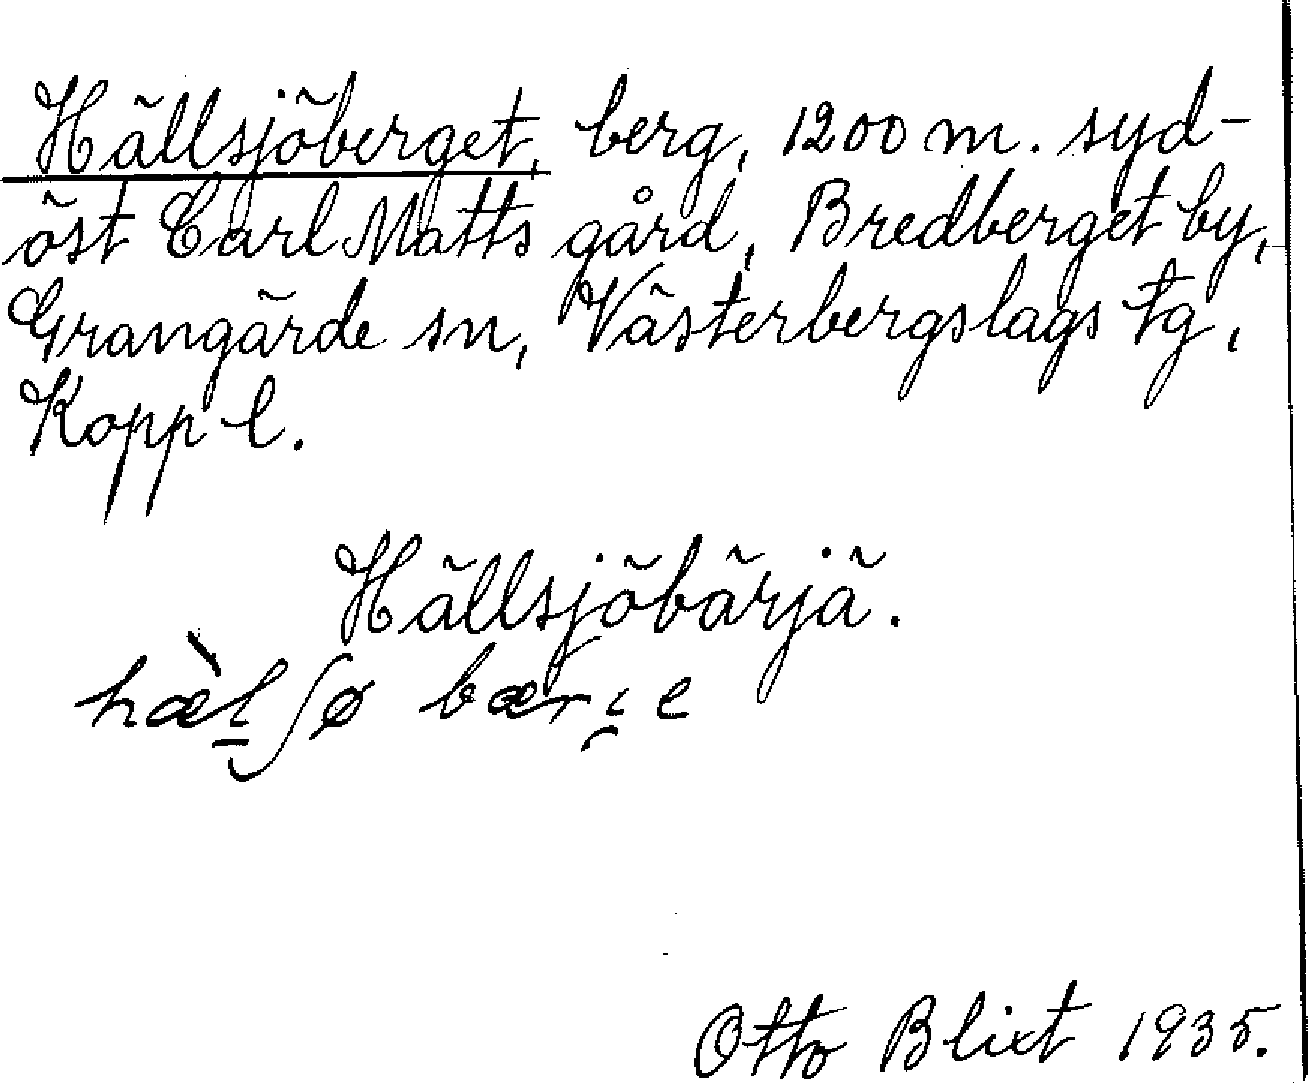 Hällsjöberget, berg, 1200 m. syd-
öst Carl Matts gård, Bredberget by,
Grangärde sn, Västerbergslags tg,
Kopp l.
Hällsjöbärjä.
hæ̀l̠ʃø bæri̯e
Otto Blixt 1935.